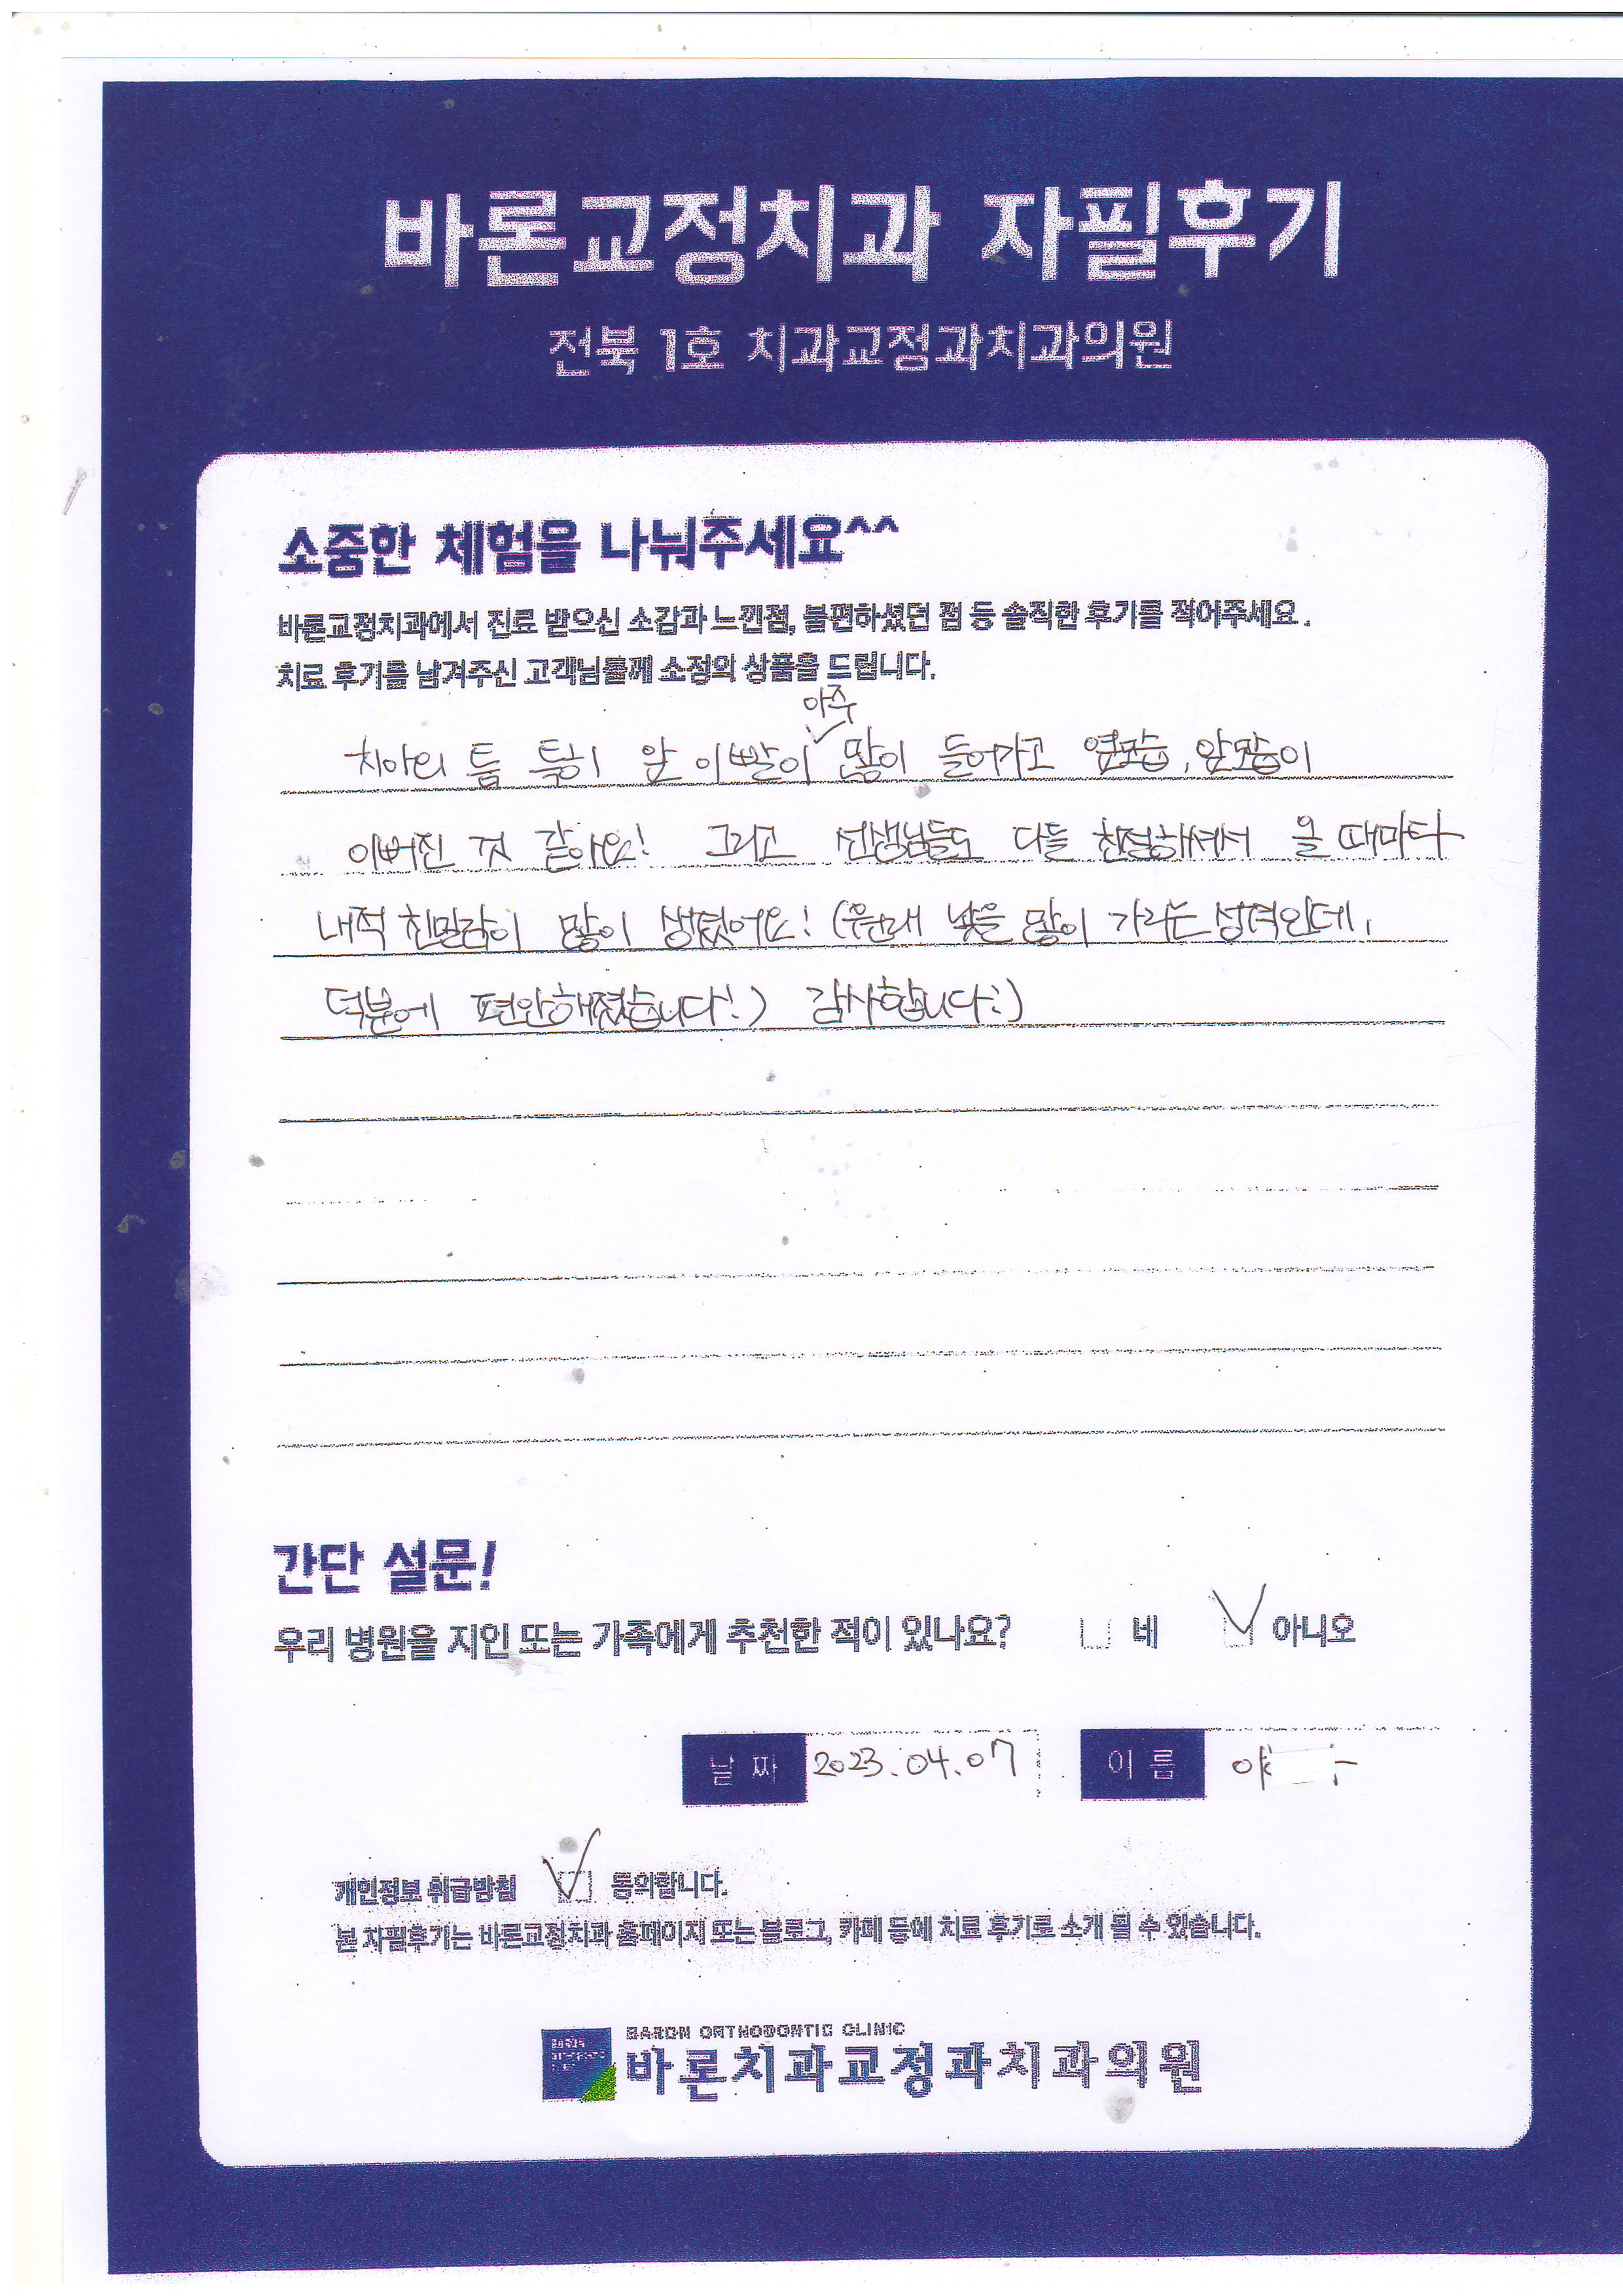 바론교정치과 자필후기
전북 1호 치과교정과치과의원
소중한 체험을 나눠주세요^^
바론교정치과에서 진료 받으신 소감과 느낀점, 불편하셨던 점 등 솔직한 후기를 적어주세요.
치료 후기를 남겨주신 고객님들께 소정의 상품을 드립니다.
아주
치아의 틈 특히 앞 이빨이 많이 들어가고 옆모습, 앞모습이
이뻐진 것 같아요! 그리고 선생님들도 다들 친절해서 올 때마다
내적 친밀감이 많이 생겼어요! (원래 낯을 많이 가리는 성격인데,
덕분에 편안해졌습니다!) 감사합니다:)
간단 설문!
우리 병원을 지인 또는 가족에게 추천한 적이 있나요? 네 아니오
날짜 2023.04.07 이름
개인정보 취급방침 동의합니다.
본 자필후기는 바론교정치과 홈페이지 또는 블로그, 카페 등에 치료 후기로 소개 될 수 있습니다.
BARON ORTHODONTIC CLINIC
바론치과교정과치과의원